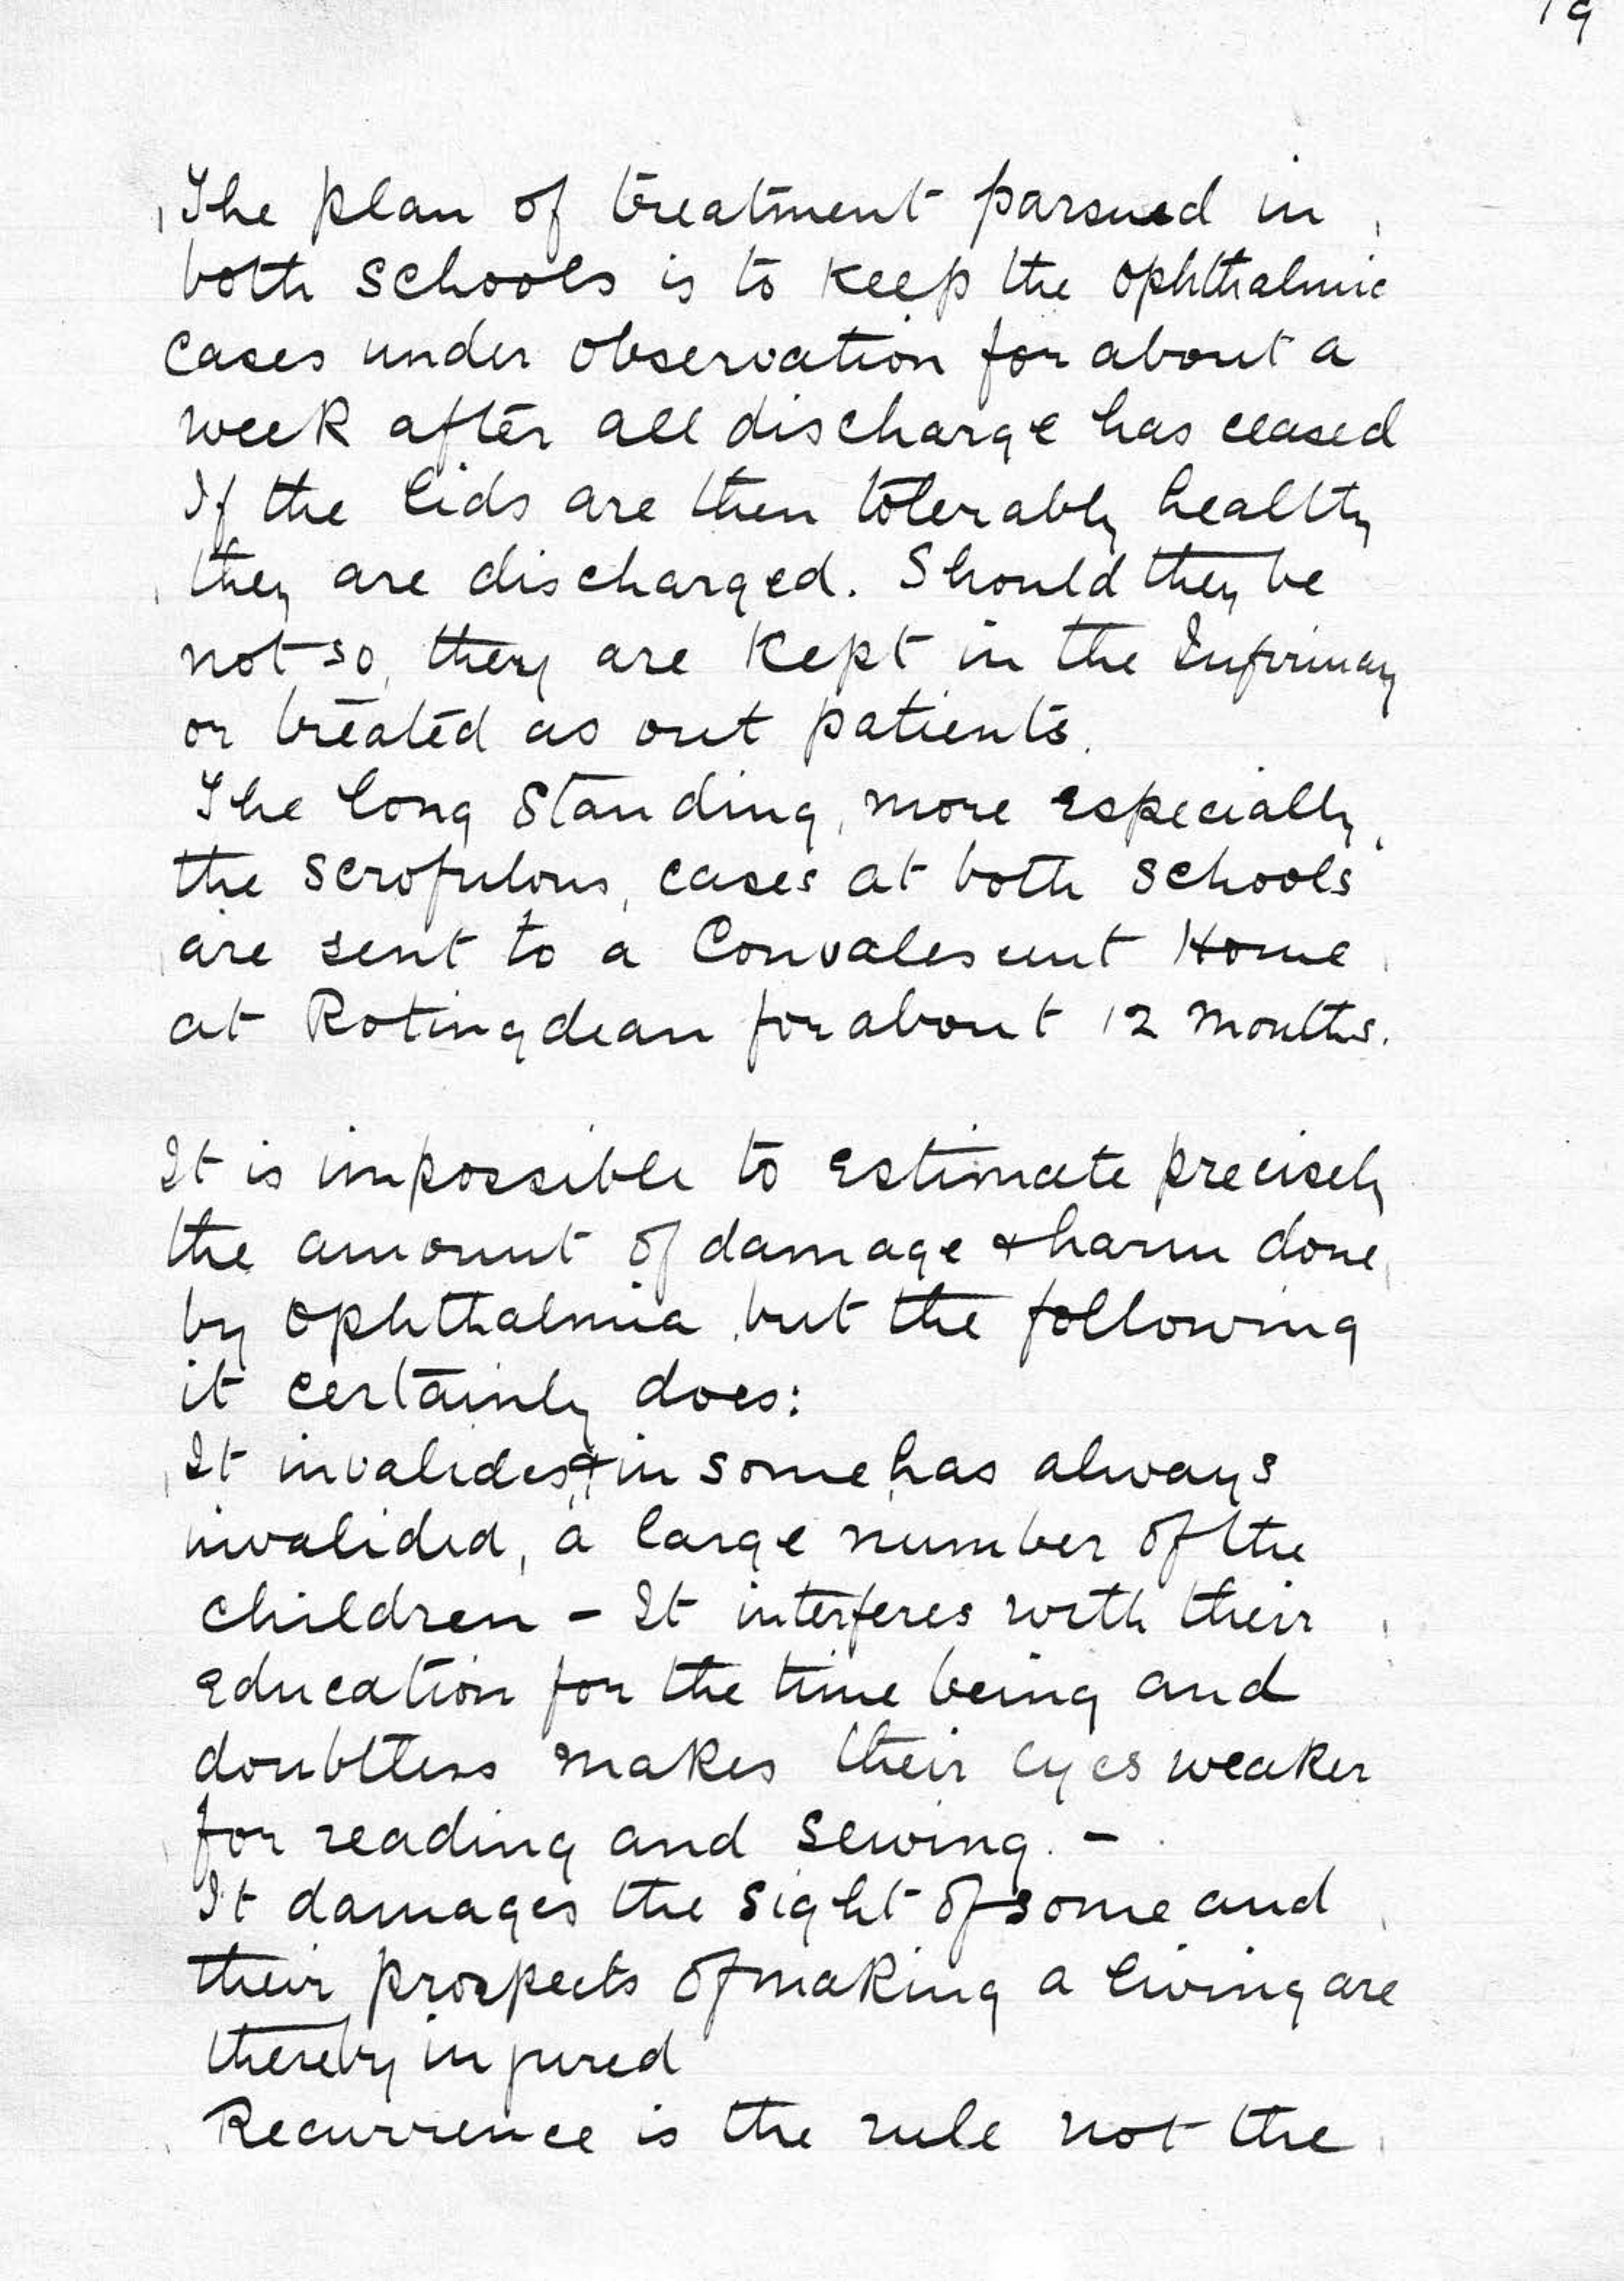 19
The plan of treatment parsued in
both Schools is to keep the Ophthalmic
Cases under Observation for about a
week after all discharge has ceased
If the lids are then tolerably healthy
they are discharged. Should they be
not so, they are kept in the Infirmary
or treated as out patients.
The long Standing, more especially,
the Scrofulous, cases at both Schools
are sent to a Convalescent Home
at Rotingdean for about 12 months.
It is impossible to estimate precisely
the amount of damage & harm done
by Ophthalmia, but the following
it certainly does:
It invalides, & in some has always
invalided, a large number of the
children - It interferes with their
Education for the time being and
doubttess makes their eyes weaker
for reading and sewing. -
It damages the sight of some and
their prospects of making a living are
thereby injured
Recurrence is the rule not the